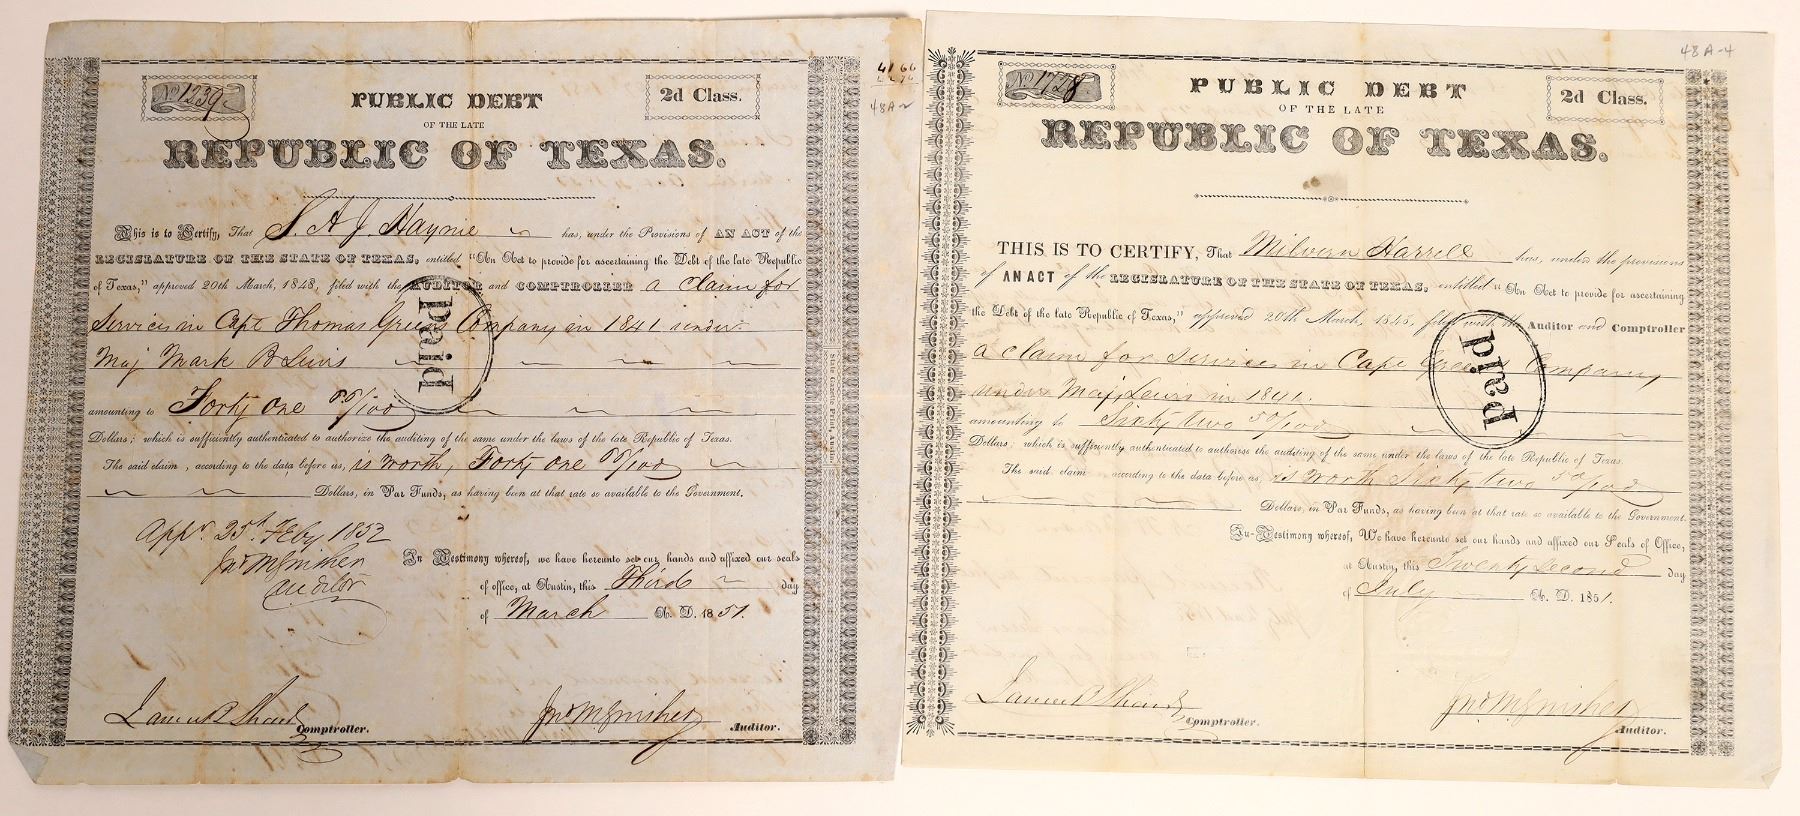 No 1239
PUBLIC DEBT
2d Class.
OF THE LATE
REPUBLIC OF TEXAS.
This is to Certify, That S. A. J. Haynie has, under the Provisions of AN ACT of the
LEGISLATURE OF THE STATE OF TEXAS, entitled "An Act to provide for ascertaining the Debt of the late Republic
of Texas," approved 20th March, 1848, filed with the AUDITOR and COMPTROLLER a claim for
Services in Capt Thomas Greens Company in 1841 under
Maj Mark B Lewis
Paid
amounting to Forty one /100
Dollars; which is sufficiently authenticated to authorize the auditing of the same under the laws of the late Republic of Texas.
The said claim, according to the data before us, is worth, Forty one /100
Dollars, in Par Funds, as having been at that rate so available to the Government.
Appr. 25th Feby 1852
Jno M Swisher
Auditor
In Testimony whereof, we have hereunto set our hands and affixed our seals
of office, at Austin, this Third day
of March A. D. 1851.
James B Shaw
Comptroller.
Jno M Swisher
Auditor.
State Gazette Print, Austin
41 66
48A
48A-4
No 1728
PUBLIC DEBT
2d Class.
OF THE LATE
REPUBLIC OF TEXAS.
THIS IS TO CERTIFY, That Milvern Harrell has, under the provisions
of AN ACT of the LEGISLATURE OF THE STATE OF TEXAS, entitled "An Act to provide for ascertaining
the Debt of the late Republic of Texas," approved 20th March, 1848, filed with the Auditor and Comptroller
a claim for services in Capt Greens Company
under Maj Lewis in 1841.
Paid
amounting to Sixty two 50/100
Dollars; which is sufficiently authenticated to authorise the auditing of the same under the laws of the late Republic of Texas.
The said claim according to the data before us, is worth Sixty two 50/100
Dollars, in Par Funds, as having been at that rate so available to the Government.
In Testimony whereof, We have hereunto set our hands and affixed our Seals of Office,
at Austin, this Twenty Second day
of July A. D. 1851.
James B Shaw
Comptroller.
Jno M Swisher
Auditor.